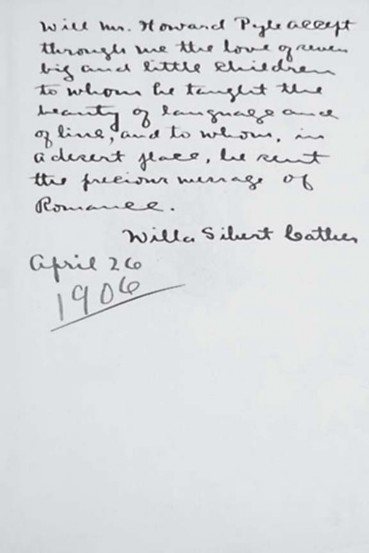 Will Mr. Howard Pyle accept
through me the love of seven
big and little children
to whom he taught the
beauty of language and
of line, and to whom, in
a desert place, he sent
the precious message of
Romance.
Willa Sibert Cather
April 26
1906